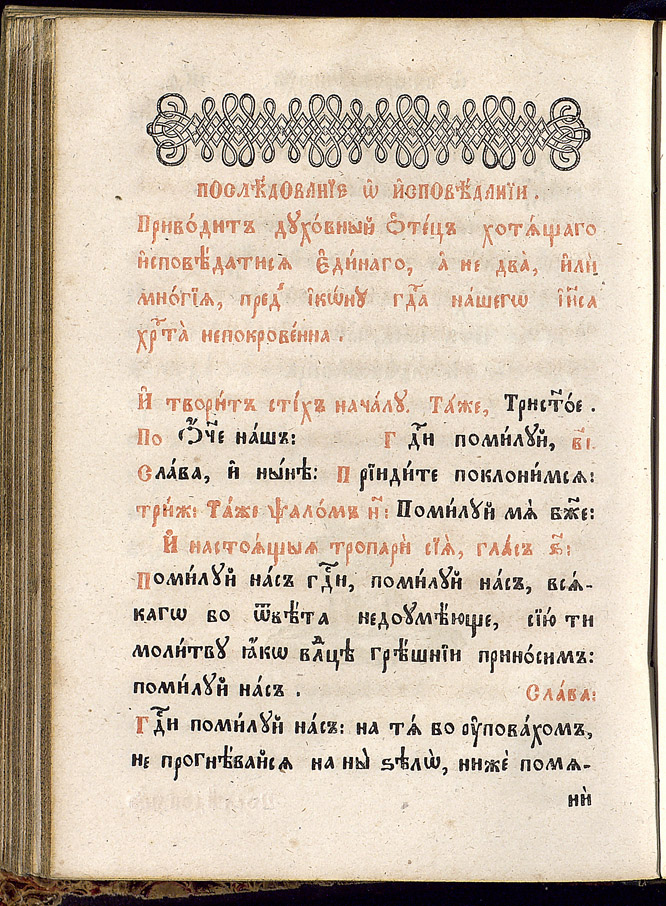 ПОСЛѢ́ДОВАНЇЕ Ѡ҆ И҆СПОВѢ́ДАНЇИ.
Приво́дитъ дꙋхо́вный ѻ҆те́цъ хотѧ́щаго
и҆сповѣ́датисѧ є҆ди́наго, а҆ не два̀, и҆лѝ
мнѡ́гїѧ, пред̾ і҆кѡ́нꙋ гдⷭ҇а на́шегѡ і҆и҃са
хрⷭ҇та̀ непокрове́нна.
И҆ твори́тъ сті́хъ нача́лꙋ. Та́же, Трист҃о́е.
По Ѻ҆́ч҃е на́шъ: Гдⷭ҇и поми́лꙋй, в҃і.
Сла́ва, и҆ ны́нѣ: Прїиди́те поклони́мсѧ:
три́ж: Та́же ѱало́мъ н҃: Поми́лꙋй мѧ̀ бж҃е:
И҆ настоѧ́щыѧ тропарѝ сїѧ̀, гла́съ ѕ҃:
Поми́лꙋй на́съ гдⷭ҇и, поми́лꙋй на́съ, всѧ́-
кагѡ бо ѿвѣ́та недоꙋмѣ́юще, сїю̀ ти
моли́твꙋ ꙗ҆́кѡ влⷣцѣ грѣ́шнїи прино́симъ:
поми́лꙋй на́съ. Сла́ва:
Гдⷭ҇и поми́лꙋй на́съ: на тѧ́ бо ᲂу҆пова́хомъ,
не прогнѣ́вайсѧ на ны̀ ѕѣлѡ̀, нижѐ помѧ-
нѝ